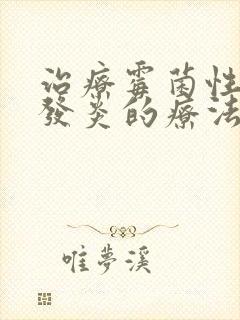 治療霉菌性
發炎的療法
唯夢溪